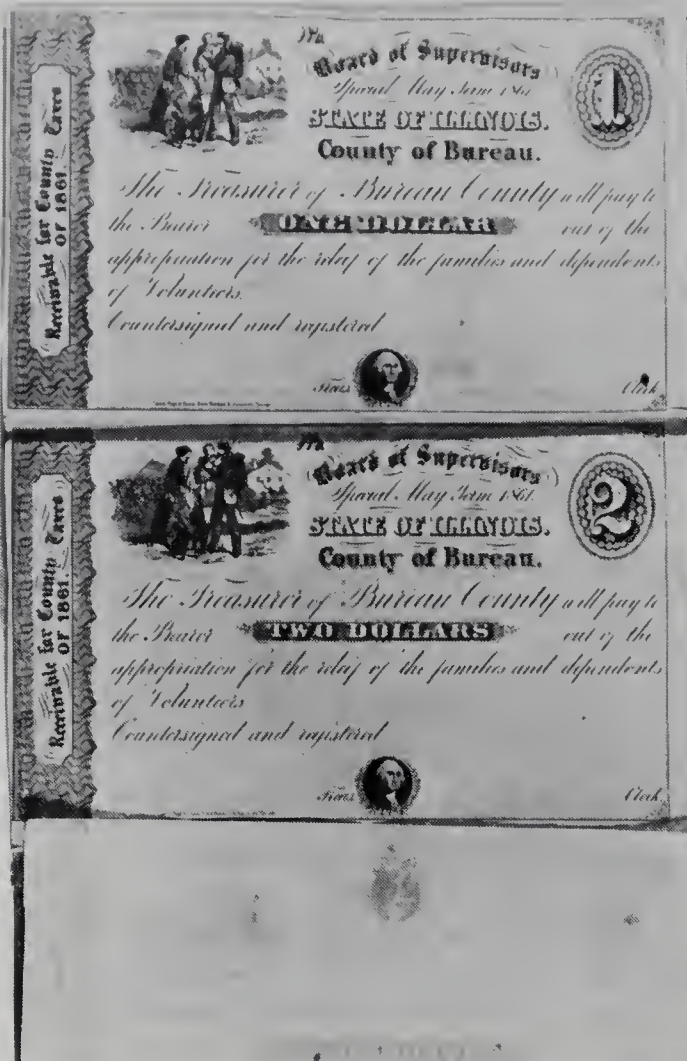 Receivable for County Taxes
OF 1861.
No.
Board of Supervisors
Special May Term 1861.
STATE OF ILLINOIS.
County of Bureau.
1
The Treasurer of Bureau County will pay to
the Bearer ONE DOLLAR out of the
appropriation for the relief of the families and dependents
of Volunteers.
Countersigned and registered
Treas.
Clerk.
Receivable for County Taxes
OF 1861.
No.
Board of Supervisors
Special May Term 1861.
STATE OF ILLINOIS.
County of Bureau.
2
The Treasurer of Bureau County will pay to
the Bearer TWO DOLLARS out of the
appropriation for the relief of the families and dependents
of Volunteers
Countersigned and registered
Treas.
Clerk.